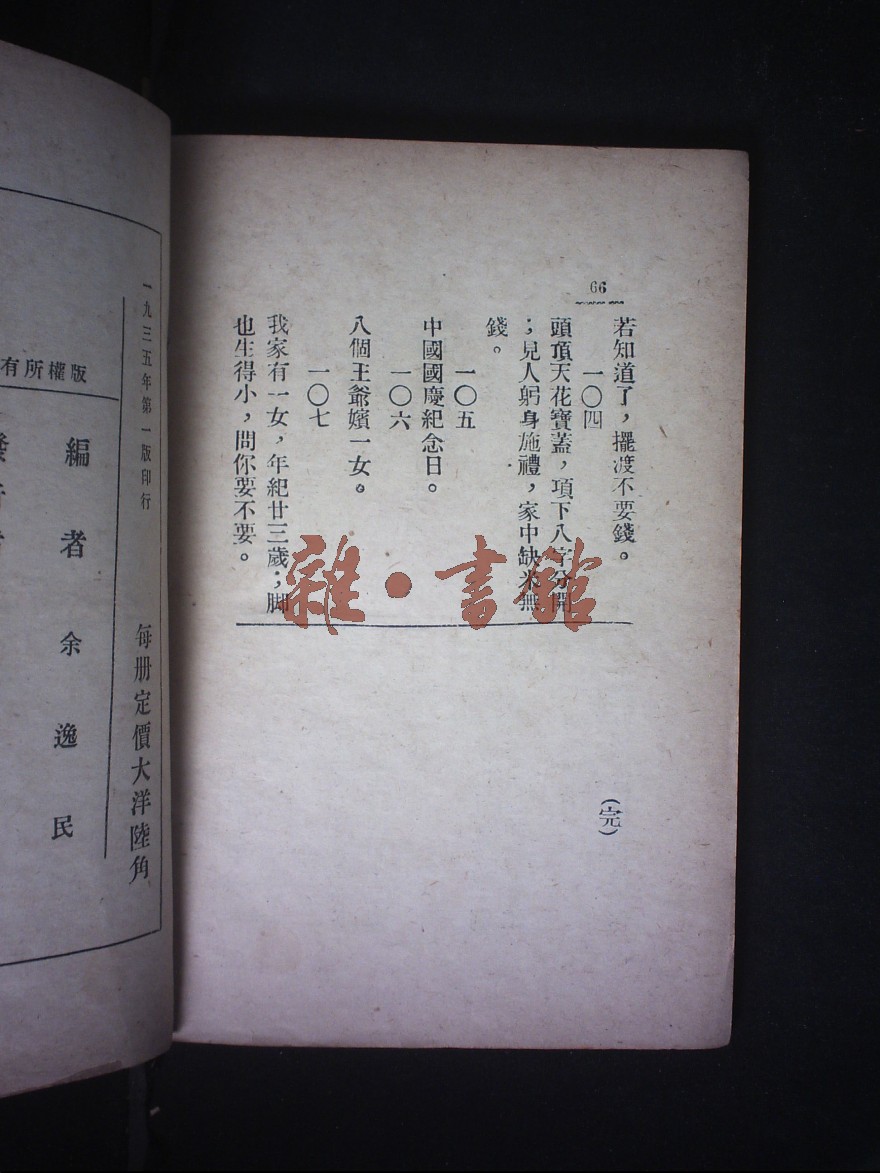 66
若知道了，擺渡不要錢。
一〇四
頭頂天花寶蓋，項下八字分開
；見人躬身施禮，家中缺米無
錢。
一〇五
中國國慶紀念日。
一〇六
八個王爺嬪一女。
一〇七
我家有一女，年紀廿三歲；脚
也生得小，問你要不要。
（完）
雜·書館
一九三五年第一版印行
每册定價大洋陸角
有所權版
編者余逸民